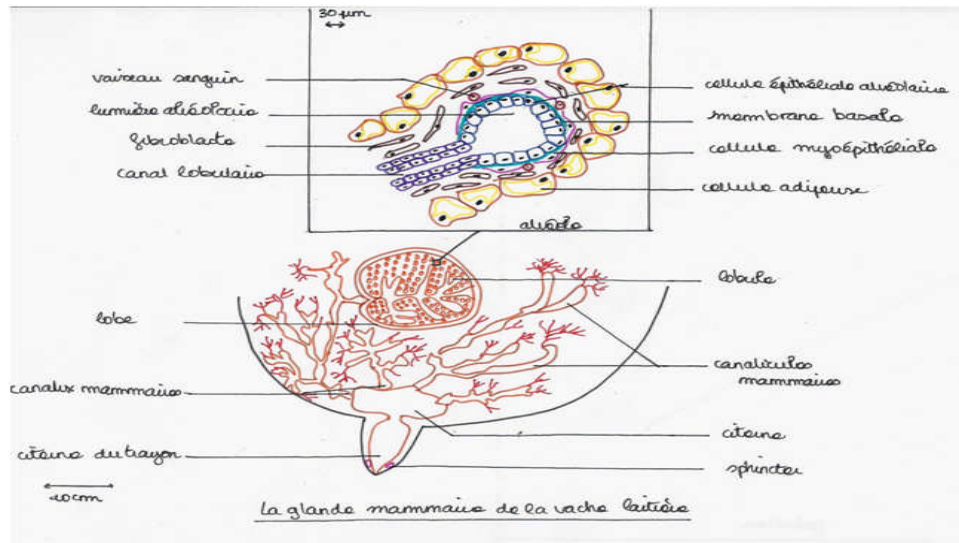 30 µm
vaisseau sanguin
lumière alvéolaire
fibroblaste
canal lobulaire
cellule épithéliale alvéolaire
membrane basale
cellule myoépithéliale
cellule adipeuse
alvéole
lobule
lobe
canaux mammaires
canalicules
mammaires
citerne
citerne du trayon
sphincter
10cm
La glande mammaire de la vache laitière